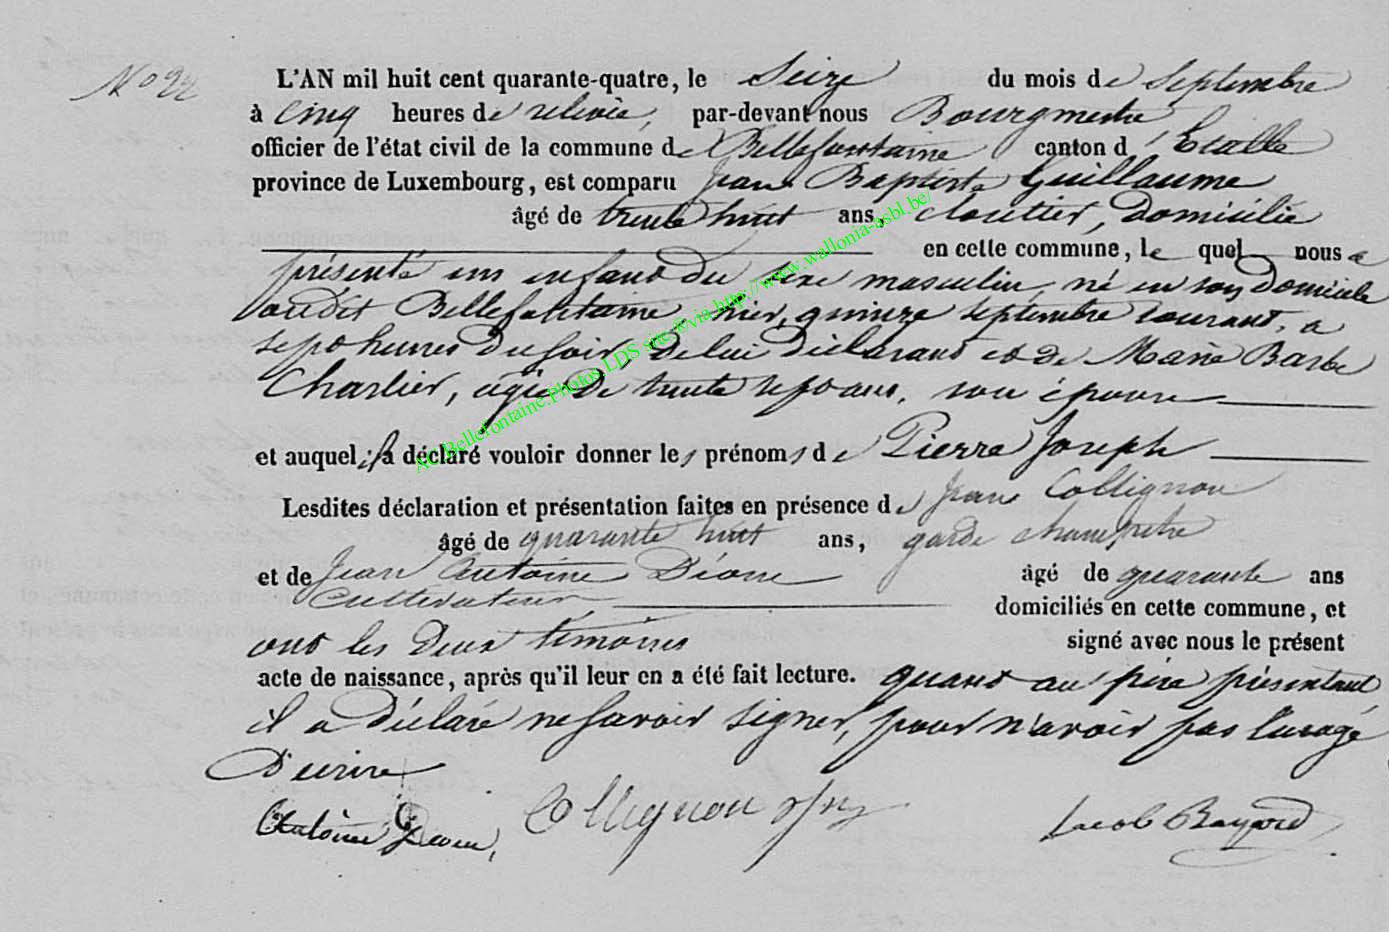 No 22
L'AN mil huit cent quarante-quatre, le Seize du mois de Septembre
à cinq heures de relevée, par-devant nous Bourgmestre
officier de l'état civil de la commune de Bellefontaine canton d'Etalle
province de Luxembourg, est comparu Jean Baptiste Guillaume
âgé de trente huit ans, cloutier, domicilié
en cette commune, le quel nous a
présenté un enfant du sexe masculin, né en son domicile
audit Bellefontaine, hier, quinze septembre courant, a
sept heures du soir, de lui déclarant et de Marie Barbe
Charlier, agée de trente sept ans, son épouse
et auquel il a déclaré vouloir donner les prénoms de Pierre Joseph
Lesdites déclaration et présentation faites en présence de Jean Collignon
âgé de quarante huit ans, garde champetre
et de Jean Antoine Dione âgé de quarante ans
cultivateur, domiciliés en cette commune, et
ont les deux témoins signé avec nous le présent
acte de naissance, après qu'il leur en a été fait lecture. quant au père présentant
il a déclaré ne savoir signer, pour n'avoir pas l'usage
d'ecrire
Antoine Collignon Jacob Bayard
AC Bellefontaine.Photos LDS site.®via http://www.wallonia-asbl.be/